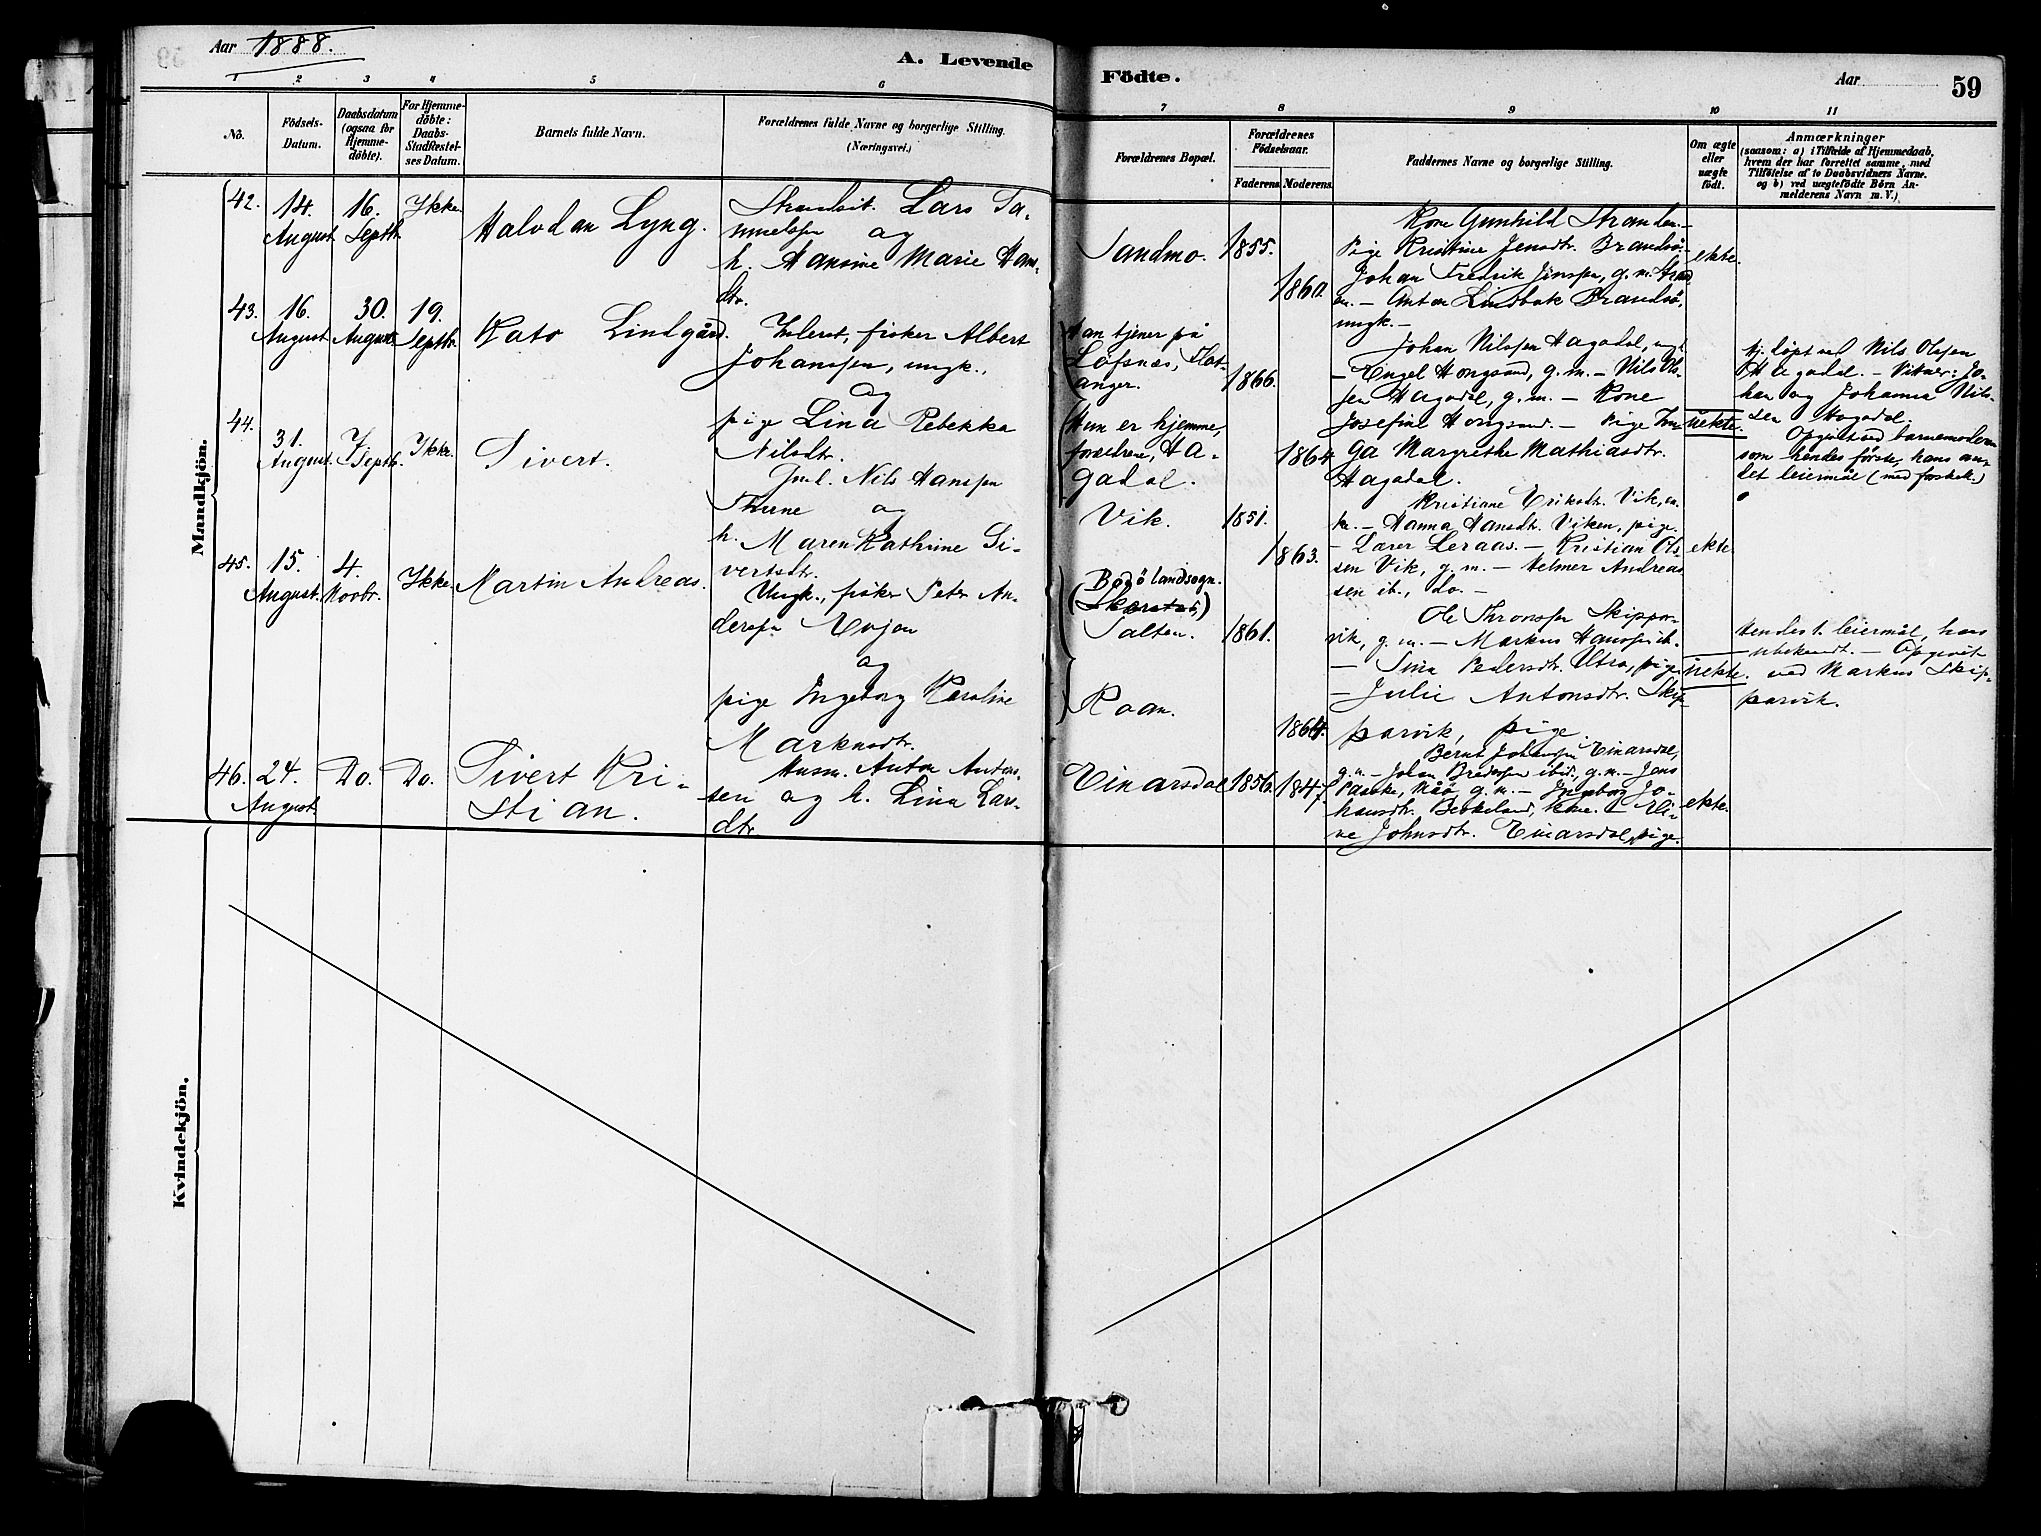 Aar 1888.
A. Levende
Födte.
Aar
59
1 2 3 4 5 6
7 8 9 10 11
No.
Födsels-
Datum.
Daabsdatum
(ogsaa for
Hjemme-
döbte).
For Hjemme-
döbte:
Daabs-
Stadfæstel-
ses Datum.
Barnets fulde Navn.
Forældrenes fulde Navne og borgerlige Stilling.
(Næringsvei.)
Forældrenes Bopæl.
Forældrenes
Födselsaar.
Faderens.
Moderens.
Faddernes Navne og borgerlige Stilling.
Om ægte
eller
uægte
födt.
Anmærkninger
(saasom: a) i Tilfælde af Hjemmedaab,
hvem der har forrettet samme, med
Tilföielse af to Daabsvidners Navne.
og b) ved uægtefödte Börn An-
melderens Navn m. V.)
Mandkjön.
42.
14.
August
16.
Septb.
Ikke
Halvdan Lyng.
Strandsit. Lars Ta-
og
h. Hansine Marie Han-
dtr.
Sandmo.
1855.
1860.
Kone Gunhild Stranden.-
Pige Kristine Jensdtr. Brandsö.-
Johan Fredrik Jenssen, g.m.
- Anton Lindbak Brandsö,
ungk.-
ekte.
43.
16.
August
30.
August
19.
Septbr.
Kato Lindgård.
Inderst, fisker Albert
Johanssen, ungk.,
og
pige Lina Rebekka
Nilsdtr.
Han tjener på
Löfsnes, Flat-
anger.
(Hun er hjemme,
forældrene, Ha-
gadal.
1866.
1864.
Johan Nilssen Hagadal, ungk.
- Engel Hongsand, g.m. - Nils Ol-
sen Hagadal, g.m. - Kone
Josefine Hongsand. - Pige In-
ga Margrethe Mathiasdtr.
Hagadal.
uekte.
Hj.döpt ved Nils Olsen
Hagadal. - Vitner: Jo-
han og Johanna Nils-
sen Hagadal.
Opgivet ved barnemoderen
som hendes förste, hans an-
det leiermål (med forskjel.)
44.
31.
August.
7
Septb.
Ikke.
Sivert.
Ind. Nils Hanssen
Thune og
h. Maren Kathrine Si-
vertsdtr.
Vik.
1851.
1863.
Kristiane Eriksdtr. Vik, en-
ke.- Hanna Hansdtr. Viken, pige.
- Lærer Leraas. - Kristian Ols-
sen Vik, g.m. - Helmer Andreas-
sen ib., do.-
ekte
45.
15.
August.
4.
Novbr.
Ikke.
Martin Andreas.
Ungk., fisker Peter An-
derssn Evjen
og
pige Ingeborg Karoline
Markusdtr.
Bodö landsogn.
Salten.
Roan.
1861.
1864.
Ole Thronssen Skippar-
vik, g.m. - Markus Hanssen ib.
- Sina Pedersdtr. Utro, pige
- Julie Antonsdtr. Skip-
parvik, pige.
uekte.
Hendes 1. leiermål, hans
ubekendt. - Opgivet
ved Markus Skip-
parvik.
46.
24.
August
Do.
Do.
Sivert Kri-
stian.
Husm. Anton Antons-
sen og h. Lina Lars-
dtr
Einarsdal
1856.
1847.
Bernt Johanssen Einarsdal,
g.m. - Johan Bredessen ibid., g.m. - Jens
g.m. - Ingeborg Jo-
hansdtr. Berkeland,
ne Johnsdtr. Einarsdal, pige.
ekte.
Kvindekjön.